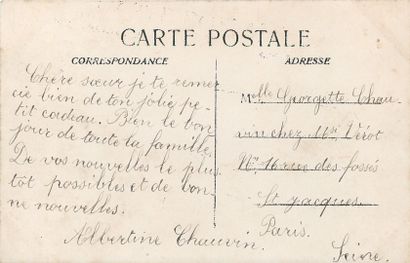 CARTE POSTALE
CORRESPONDANCE
ADRESSE
Chère sœur je te remer
cie bien de ton jolie pe
tit cadeau. Bien le bon
jour de toute la famille.
De vos nouvelles le plus
tôt possibles et de bon
ne nouvelles.
Albertine Chauvin.
Melle Georgette Chau
vin chez Mr Vérot
No 16 rue des fossés
St Jacques.
Paris.
Seine.